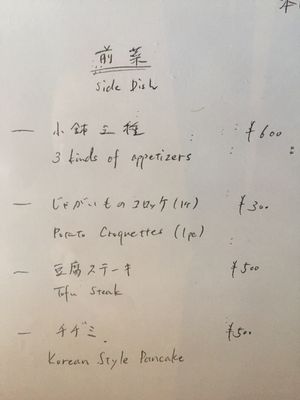 本
前菜
Side Dish
一 小鉢三種 ¥600
3 kinds of appetizers
一 じゃがいものコロッケ(1ケ) ¥300
Potato Croquettes (1pc)
一 豆腐ステーキ ¥500
Tofu Steak
一 チヂミ ¥500
Korean Style Pancake